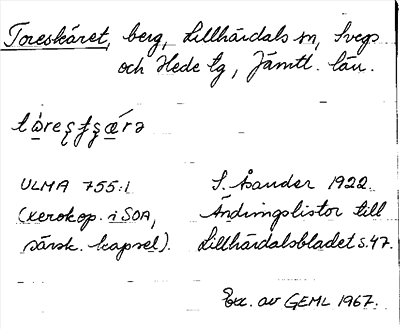 Toreskäret, berg, Lillhärdals sn, Svegs
och Hede tg, Jämtl. län.
ULMA 755:1
(xerokop. i SOA,
särsk. kapsel).
S. Åsander 1922
Ändringslistor till
Lillhärdalsbladet s. 47.
Ex. av GEML 1967.